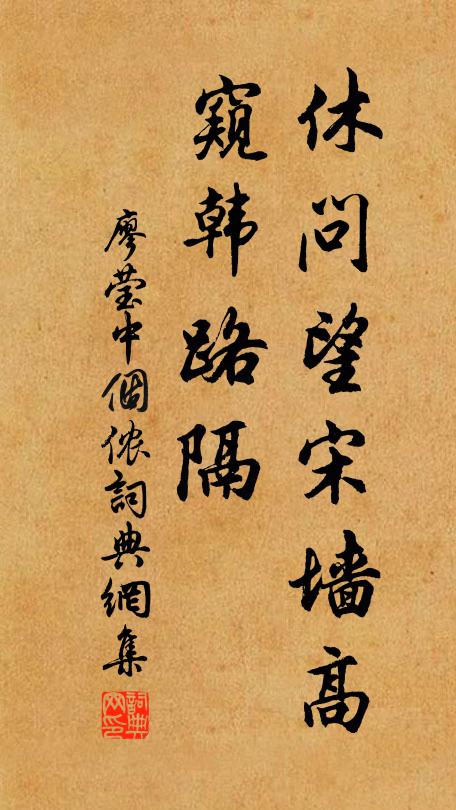 休问望宋墙高
窥韩路隔
廖莹中個侬詞典網集
詞典網印